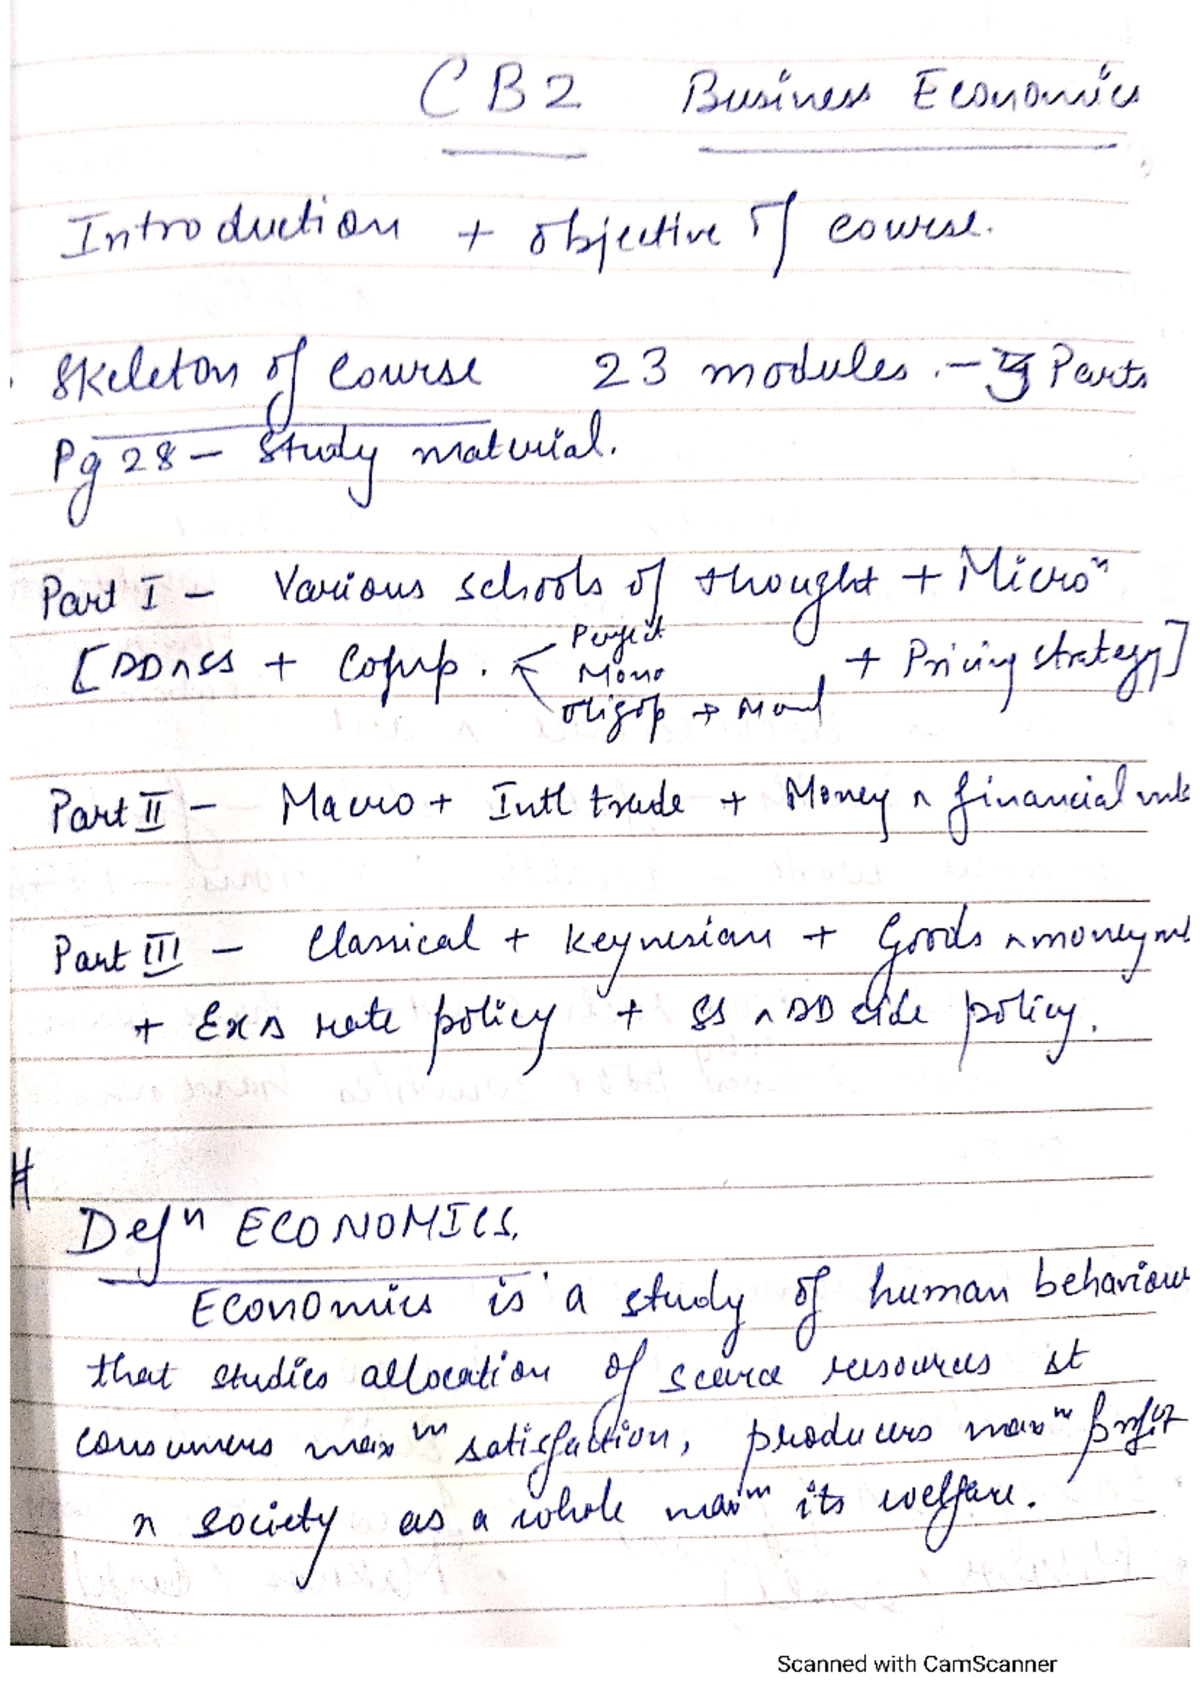 CB2 Business Economics
Introduction + objective of course.
Skeleton of course 23 modules. - 3 Parts
Pg 28 - Study material.
Part I - Various schools of thought + Micro"
[DD n SS + Comp. Perfect + Pricing strategy]
Mono
Oligop →
Part II - Macro + Intl trade + Money n financial mk
Part III - Classical + Keynesian + Goods n money mk
+ Ex Δ rate policy + SS n DD side policy.
#
Defⁿ ECONOMICS.
Economics is a study of human behaviour
that studies allocation of scarce resources st
consumers maxᵐ satisfaction, producers maxᵐ profit
n society as a whole maxᵐ its welfare.
Scanned with CamScanner